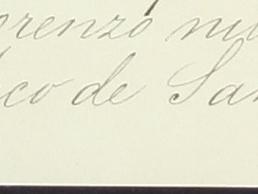 orenzo nu
co de San